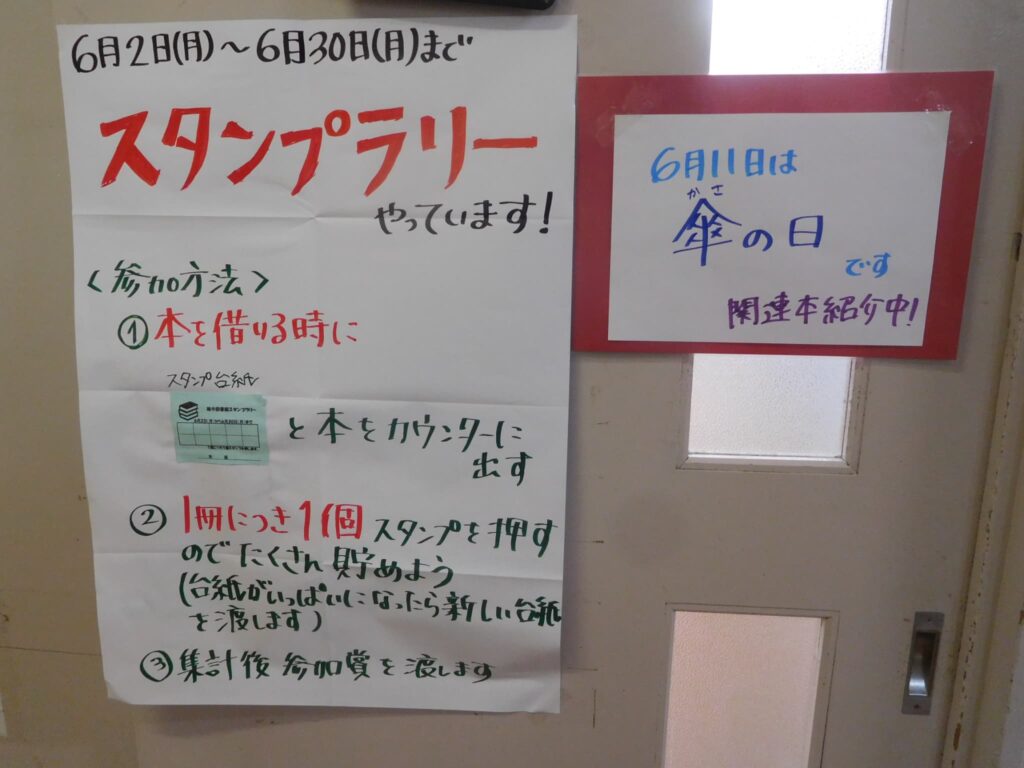 6月2日(月)～6月30日(月)まで
スタンプラリー
やっています!
〈参加方法〉
①本を借りる時に
スタンプ台紙
と本をカウンターに
出す
②1冊につき1個スタンプを押す
のでたくさん貯めよう
(台紙がいっぱいになったら新しい台紙
を渡します)
③集計後参加賞を渡します
6月11日は
かさ
傘の日
です
関連本紹介中!